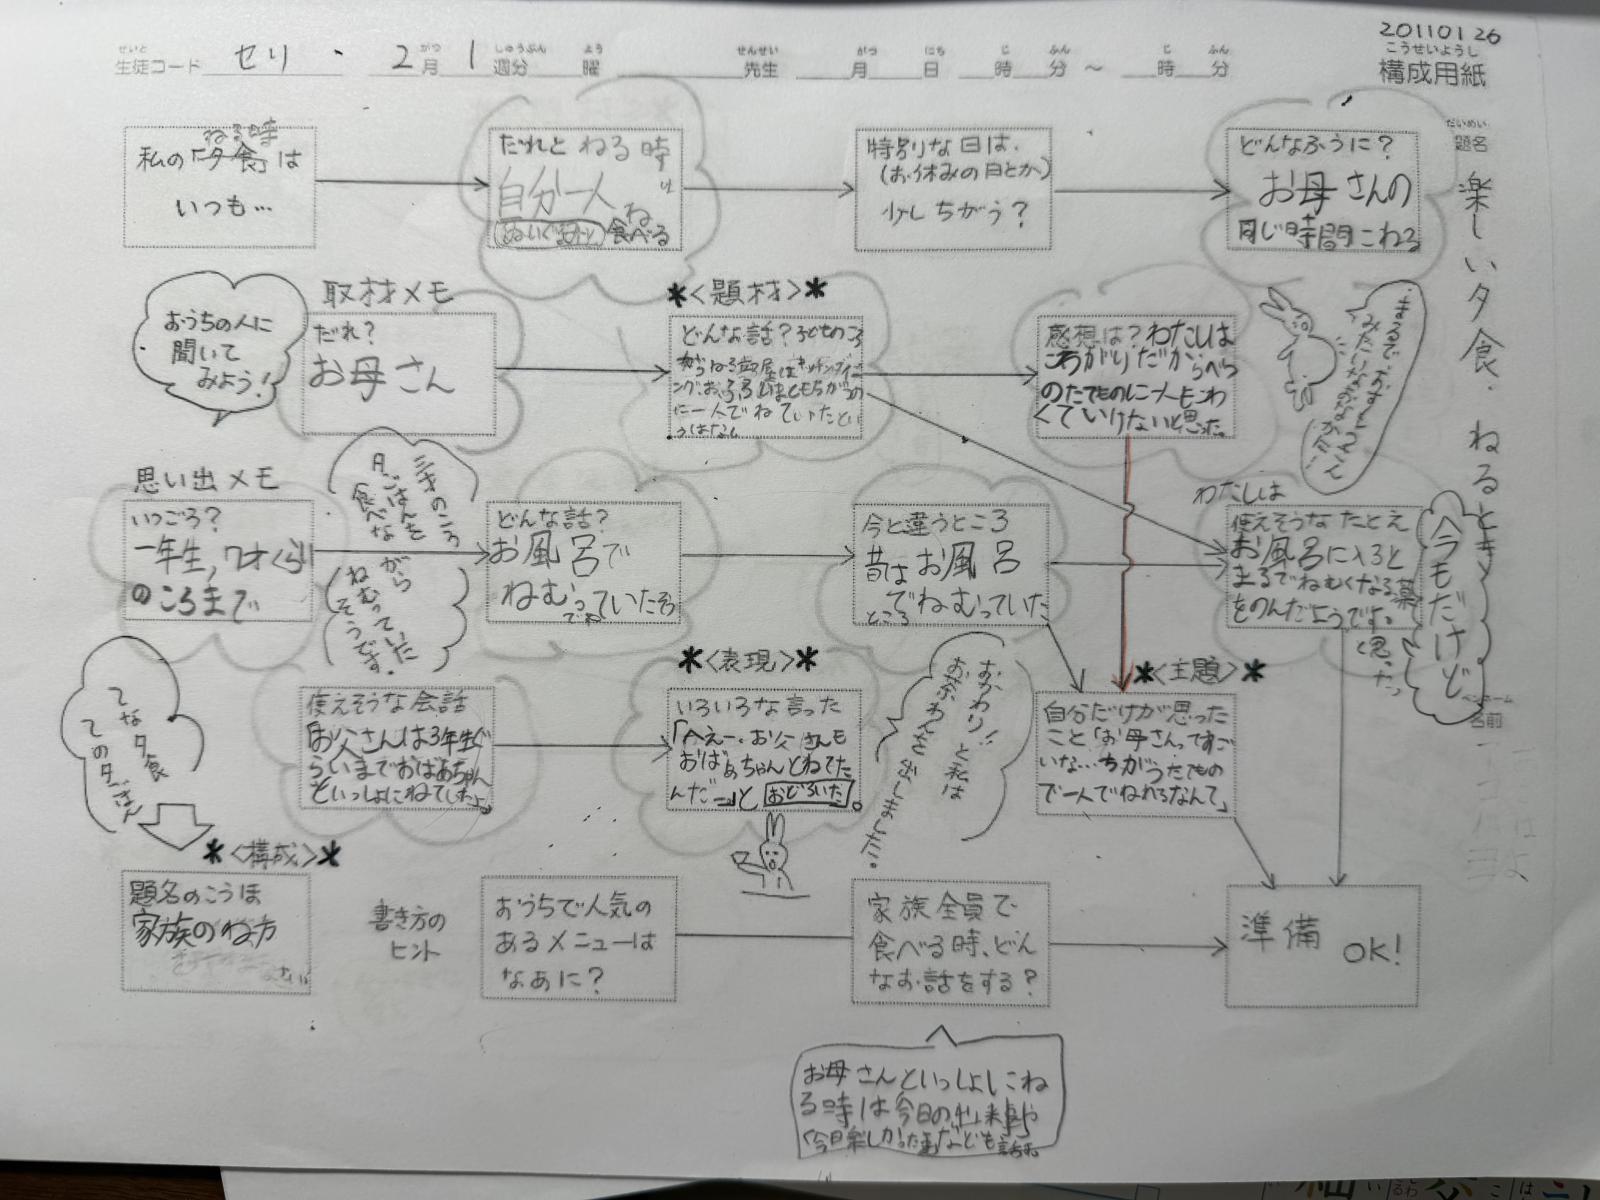 20110126
せいと
生徒コード セリ ・ 2月 1週分 曜
がつ しゅうぶん よう
せんせい がつ にち じ ふん じ ふん
先生 月 日 時 分 ～ 時 分
こうせいようし
構成用紙
だいめい
題名
楽しい夕食・ねるとき
ねる時
私の「夕食」は
いつも…
だれと ねる時
自分一人
食べる
特別な日は、
(お休みの日とか)
少しちがう？
どんなふうに？
お母さんの
同じ時間にねる
おうちの人に
聞いて
みよう！
取材メモ
だれ？
お母さん
*<題材>*
どんな話？子どものころ
に一人でねていたとい
うはなし
感想は？わたしは
こわがりだからべつ
のたてものに一人でこわ
くていけないと思った。
思い出メモ
いつごろ？
一年生,7才くらい
のころまで
三才のころ
夕ごはんを
食べな
がら
ねむっていた
そうです。
どんな話？
お風呂で
ねむっていた
今と違うところ
昔はお風呂
でねむっていた
ところ
わたしは
使えそうなたとえ
お風呂に入ると
まるでねむくなる薬
をのんだようです。
と思った
今もだけど
ペンネーム
名前
てな夕食
ての夕ごはん
使えそうな会話
「お父さんは3年生ぐ
らいまでおばあちゃん
といっしょにねてしたよ。
*<表現>*
いろいろな言った
「へえー、お父さんも
おばあちゃんとねてた
んだー」と おどろいた。
おかわり!! と私は
*<主題>*
自分だけが思った
こと「お母さんってすご
いな…ちがうたてもの
で一人でねれるなんて」
*<構成>*
題名のこうほ
家族のね方
書き方の
ヒント
おうちで人気の
あるメニューは
なあに？
家族全員で
食べる時、どん
なお話をする？
準備
OK!
お母さんといっしょにね
る時は今日の出来事や
「今日楽しかった事」なども話す。